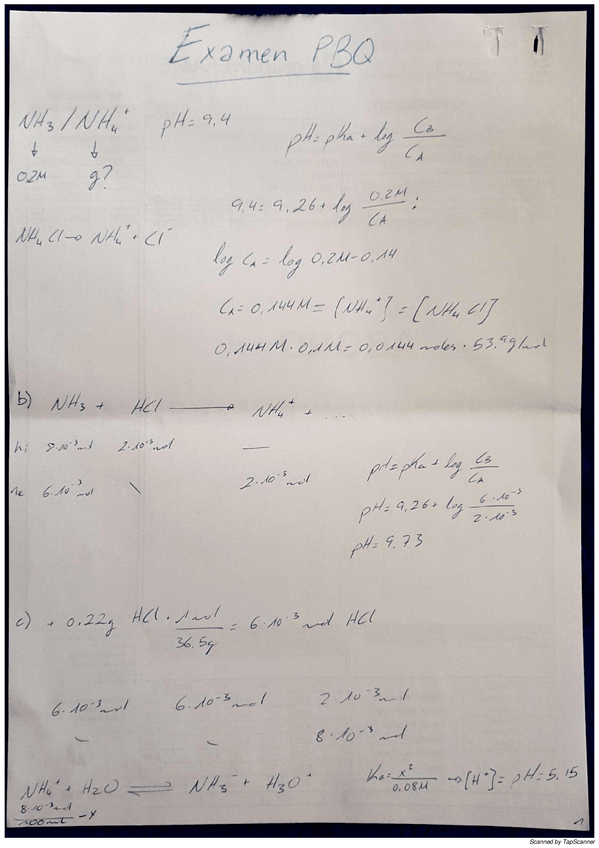 Examen PBQ
NH3 / NH4+ pH = 9,4
↓ ↓
0.2M g?
pH = pKa + log CB/CA
9,4 = 9,26 + log 0.2M/CA ;
NH4Cl → NH4+ + Cl-
log CA = log 0,2M - 0,14
CA = 0,144M = [NH4+] = [NH4Cl]
0,144M · 0,1M = 0,0144 moles · 53.9g/mol
b) NH3 + HCl ⟶ NH4+ + ....
ni 8·10-3 mol 2·10-3 mol —
ne 6·10-3 mol \ 2·10-3 mol
pH = pKa + log CB/CA
pH = 9,26 + log 6·10-3/2·10-3
pH = 9,73
c) + 0.22g HCl · 1mol/36.5g = 6·10-3 mol HCl
6·10-3 mol 6·10-3 mol 2·10-3 mol
- - 8·10-3 mol
NH4+ + H2O ⇌ NH3- + H3O+ Ka = x2/0.08M → [H+] = pH = 5,15
8·10-3 mol/100ml - x
1
Scanned by TapScanner